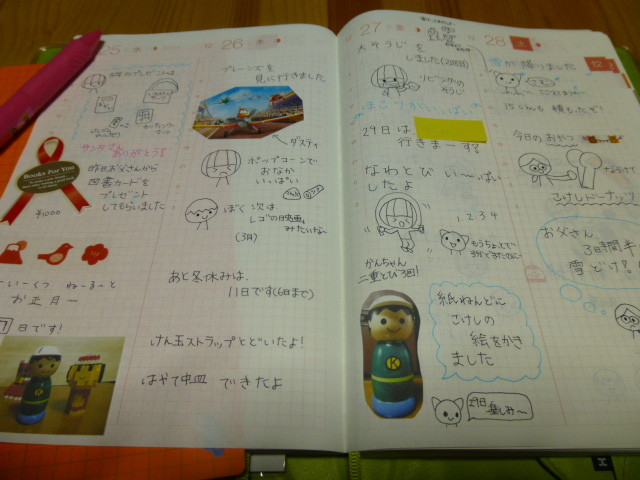 25 水
今年のプレゼントは
サンタさん
ありがとう!!
昨日お父さんから
図書カードを
プレゼント
してもらいました
Books For You
¥1000
お正月ー
日です!
26 木
プレーンズを
見に行きました
ダスティ
ポップコーンで
おなか
いっぱい
ぼく次は
レゴの映画
みたいな〜
(3月)
あと冬休みは、
11日です(6日まで)
けん玉ストラップとどいたよ!
はやて中皿 できたよ
27 金
大そうじを
しました(2日目)
リビングの
そうじ
ほこりがいっぱい
29日は
行きまーす?
なわとび い〜っぱい
したよ
1 2 3 4
もうちょっとで
かんちゃん
二重とび3回!
紙ねんどに
こけしの
絵をかき
ました
K
29日
楽しみ〜
28 土
12
雪が降りました
15cmも積もったぞ!
今日のおやつ
こけしドーナツ
お父さん
3時間半
雪どけ!